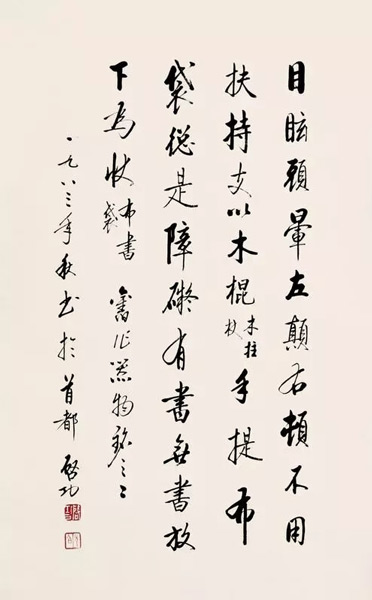 目眩頭暈左顛右頓不用
扶持支以木棍木拄杖手提布
袋總是障礙有書無書放
下爲快布書袋 舊作器物銘之二
一九八三年秋書於首都 啓功